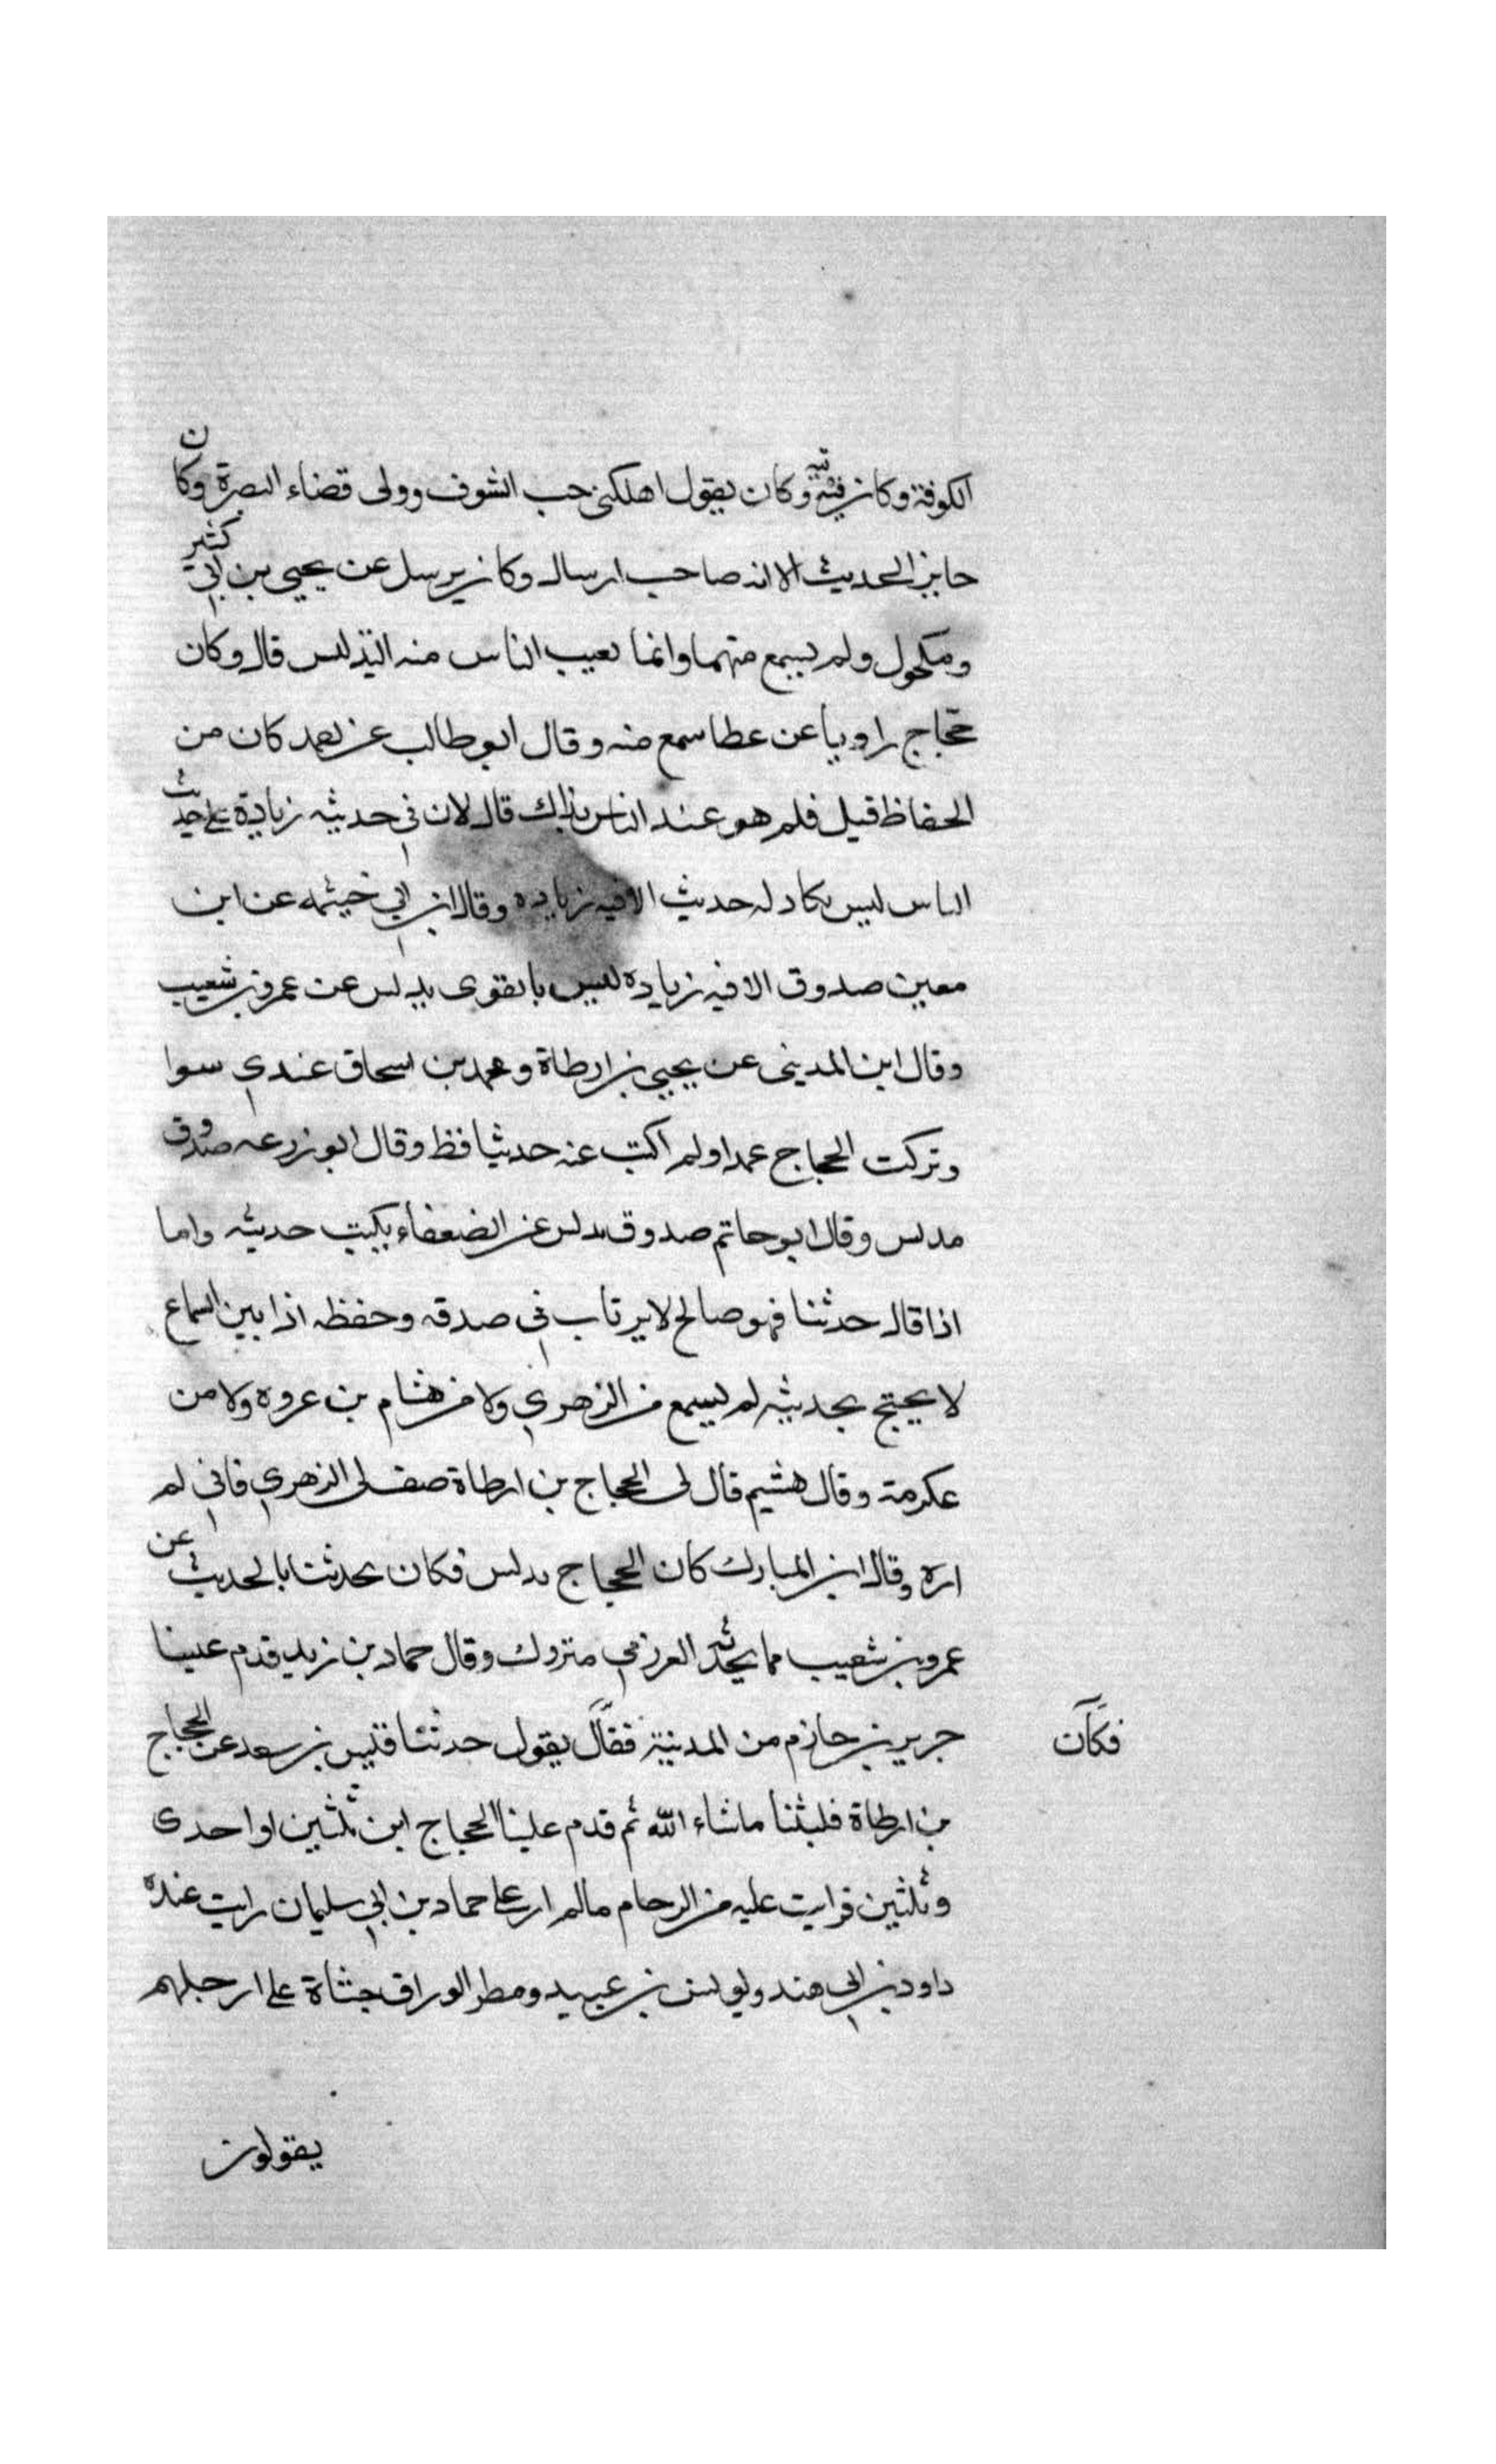 الكوفة وكان فيه تيه وكان يقول اهلكنى حب الشرف وولى قضاء البصرة وكان
جايز الحديث الا انه صاحب ارسال وكان يرسل عن يحيى بن ابي كثير
ومكحول ولم يسمع منهما وانما يعيب الناس منه التدليس قال وكان
حجاج راويا عن عطا سمع منه وقال ابو طالب عن احمد كان من
الحفاظ قيل فلم هو عند الناس بذاك قال لان في حديثه زيادة على حديث
الناس ليس يكاد له حديث الا فيه زياده وقال ابن ابي خيثمه عن ابن
معين صدوق الا فيه زياده ليس بالقوى يدلس عن عمرو بن شعيب
وقال ابن المدينى عن يحيى بن ارطاة ومحمد بن اسحاق عندي سوا
وتركت الحجاج عمدا ولم اكتب عنه حديثا قط وقال ابو زرعه صدوق
مدلس وقال ابو حاتم صدوق يدلس عن الضعفاء يكتب حديثه واما
اذا قال حدثنا فهو صالح لا يرتاب في صدقه وحفظه اذا بين السماع
لا يحتج بحديثه لم يسمع من الزهري ولا من هشام بن عروه ولا من
عكرمة وقال هشيم قال لى الحجاج بن ارطاة صف لى الزهري فاني لم
اره وقال ابن المبارك كان الحجاج يدلس فكان يحدثنا بالحديث عن
عمرو بن شعيب مما يحدثه العرزمي متروك وقال حماد بن زيد قدم علينا
جرير بن حازم من المدينة فقال يقول حدثنا قيس بن سعد عن الحجاج
فكان
بن ارطاة فلبثنا ماشاء الله ثم قدم علينا الحجاج ابن ثلثين او احدى
وثلثين فرايت عليه من الزحام مالم ار على حماد بن ابي سليمان رايت عنده
داود بن ابي هند ويونس بن عبيد ومطر الوراق جثاة على ارجلهم
يقولون